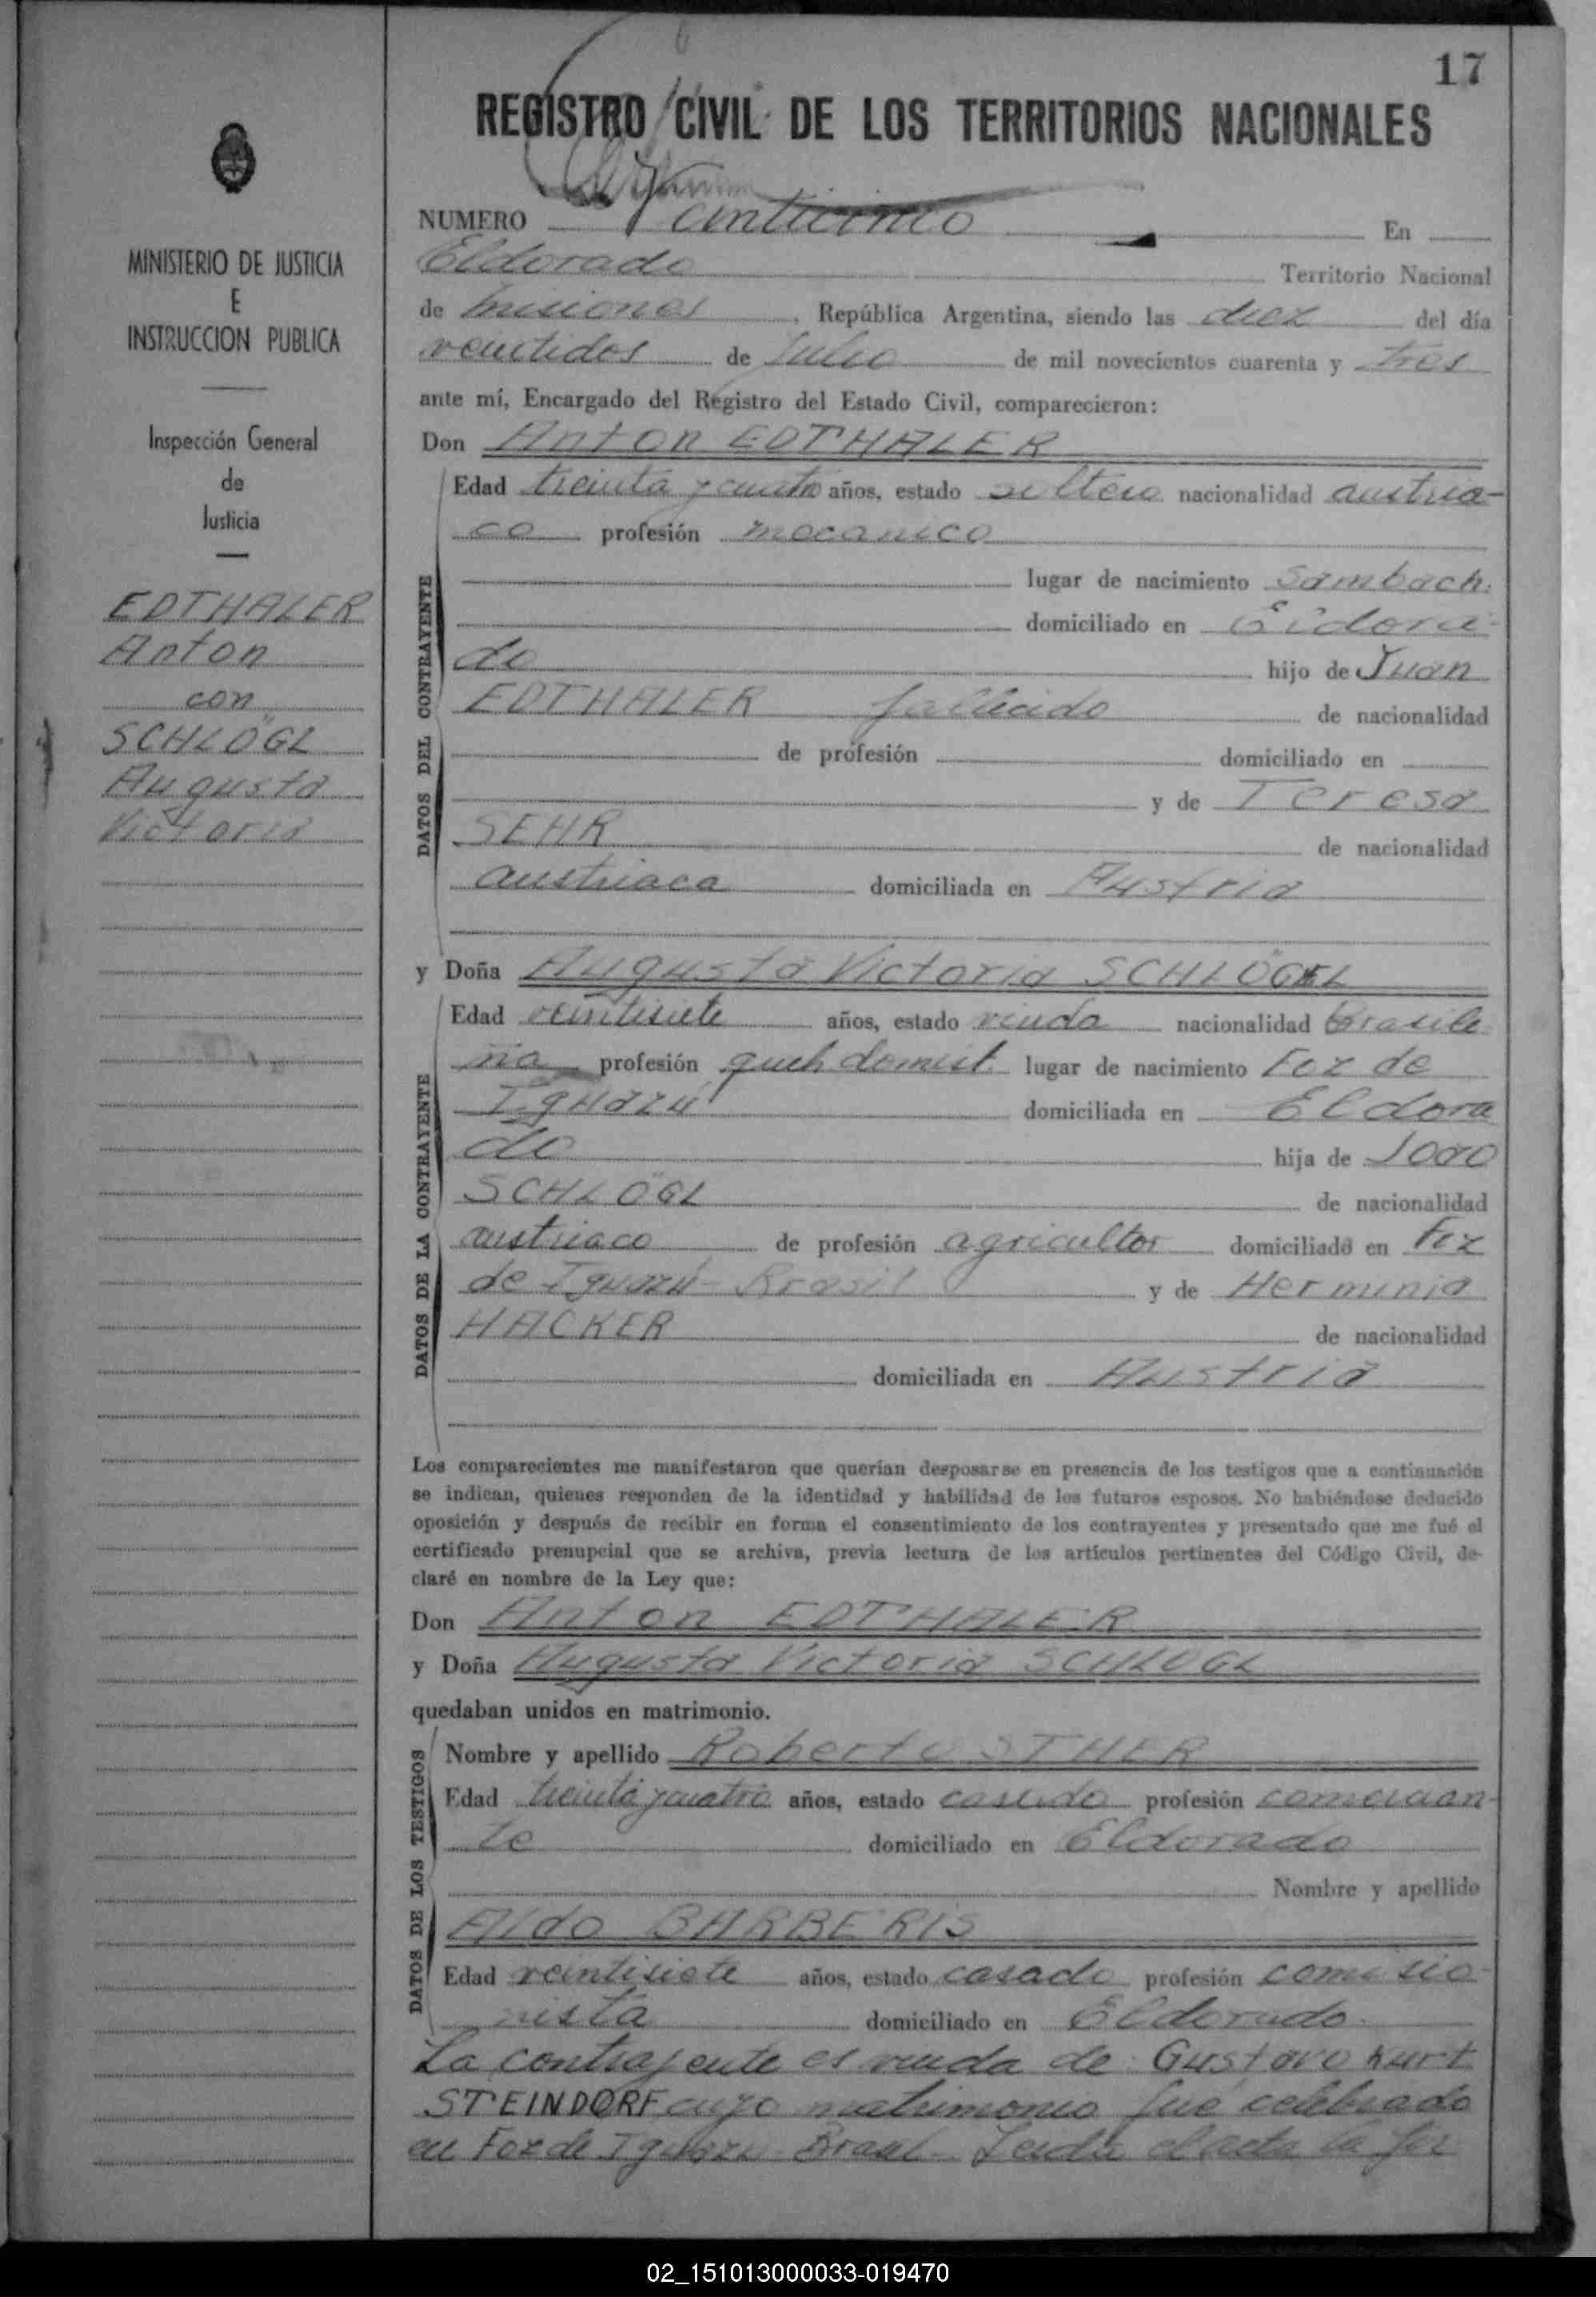 17
REGISTRO CIVIL DE LOS TERRITORIOS NACIONALES
MINISTERIO DE JUSTICIA
E
INSTRUCCION PUBLICA
Inspección General
de
Justicia
EDTHALER
Anton
con
SCHLÖGL
Augusta
Victoria
NUMERO Veinticinco En
Eldorado Territorio Nacional
de Misiones, República Argentina, siendo las diez del día
veintidos de Julio de mil novecientos cuarenta y tres
ante mí, Encargado del Registro del Estado Civil, comparecieron:
Don Anton EDTHALER
DATOS DEL CONTRAYENTE
Edad treinta y cuatro años, estado soltero nacionalidad austria-
co profesión mecanico
lugar de nacimiento Sambach
domiciliado en Eldora-
do hijo de Juan
EDTHALER fallecido de nacionalidad
de profesión domiciliado en
y de Teresa
SEHR de nacionalidad
austriaca domiciliada en Austria
y Doña Augusta Victoria SCHLÖGL
DATOS DE LA CONTRAYENTE
Edad veintisiete años, estado viuda nacionalidad Brasile
ña profesión queh. domést. lugar de nacimiento Foz de
Iguazú domiciliada en Eldora
do hija de Joao
SCHLÖGL de nacionalidad
austriaco de profesión agricultor domiciliado en Foz
de Iguazú - Brasil y de Herminia
HACKER de nacionalidad
domiciliada en Austria
Los comparecientes me manifestaron que querían desposarse en presencia de los testigos que a continuación
se indican, quienes responden de la identidad y habilidad de los futuros esposos. No habiéndose deducido
oposición y después de recibir en forma el consentimiento de los contrayentes y presentado que me fué el
certificado prenupcial que se archiva, previa lectura de los artículos pertinentes del Código Civil, de-
claré en nombre de la Ley que:
Don Anton EDTHALER
y Doña Augusta Victoria SCHLÖGL
quedaban unidos en matrimonio.
DATOS DE LOS TESTIGOS
Nombre y apellido Roberto STHER
Edad treinta y cuatro años, estado casado profesión comercian-
te domiciliado en Eldorado
Nombre y apellido
Aldo BARBERIS
Edad veintisiete años, estado casado profesión comisio-
nista domiciliado en Eldorado.
La contrayente es viuda de Gustavo Kurt
STEINDORF cuyo matrimonio fué celebrado
en Foz de Iguazú - Brasil - Leida el acta la fir
02_151013000033-019470